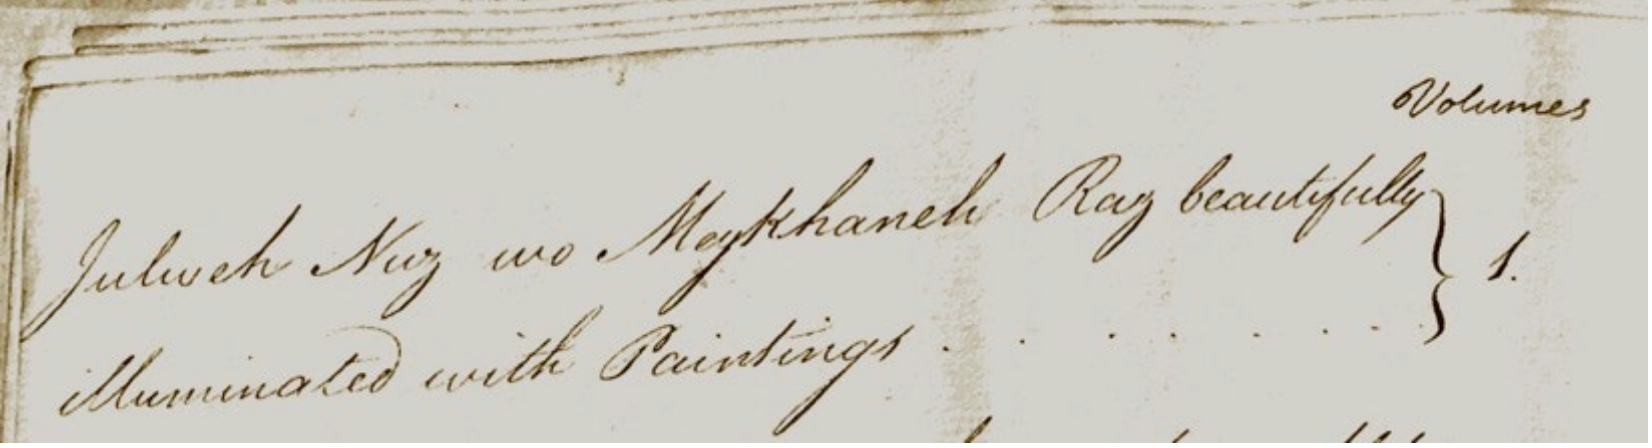 Volumes
Julweh Nuz wo Meykhaneh Raz beautifully } 1.
illuminated with Paintings . . . . . . . .